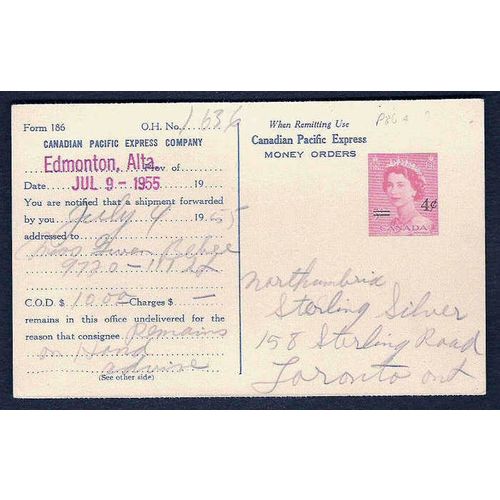 Form 186 O.H. No. 1636
CANADIAN PACIFIC EXPRESS COMPANY
Edmonton, Alta.
Date JUL 9 - 1955 19
You are notified that a shipment forwarded
by you July 4 1955
addressed to
9720 - 112
C.O.D. $ 10.00 Charges $ —
remains in this office undelivered for the
reason that consignee Remains
on Hand
advise
(See other side)
When Remitting Use
Canadian Pacific Express
MONEY ORDERS
4¢
CANADA
Northumbria
Sterling Silver
158 Sterling Road
Toronto Ont